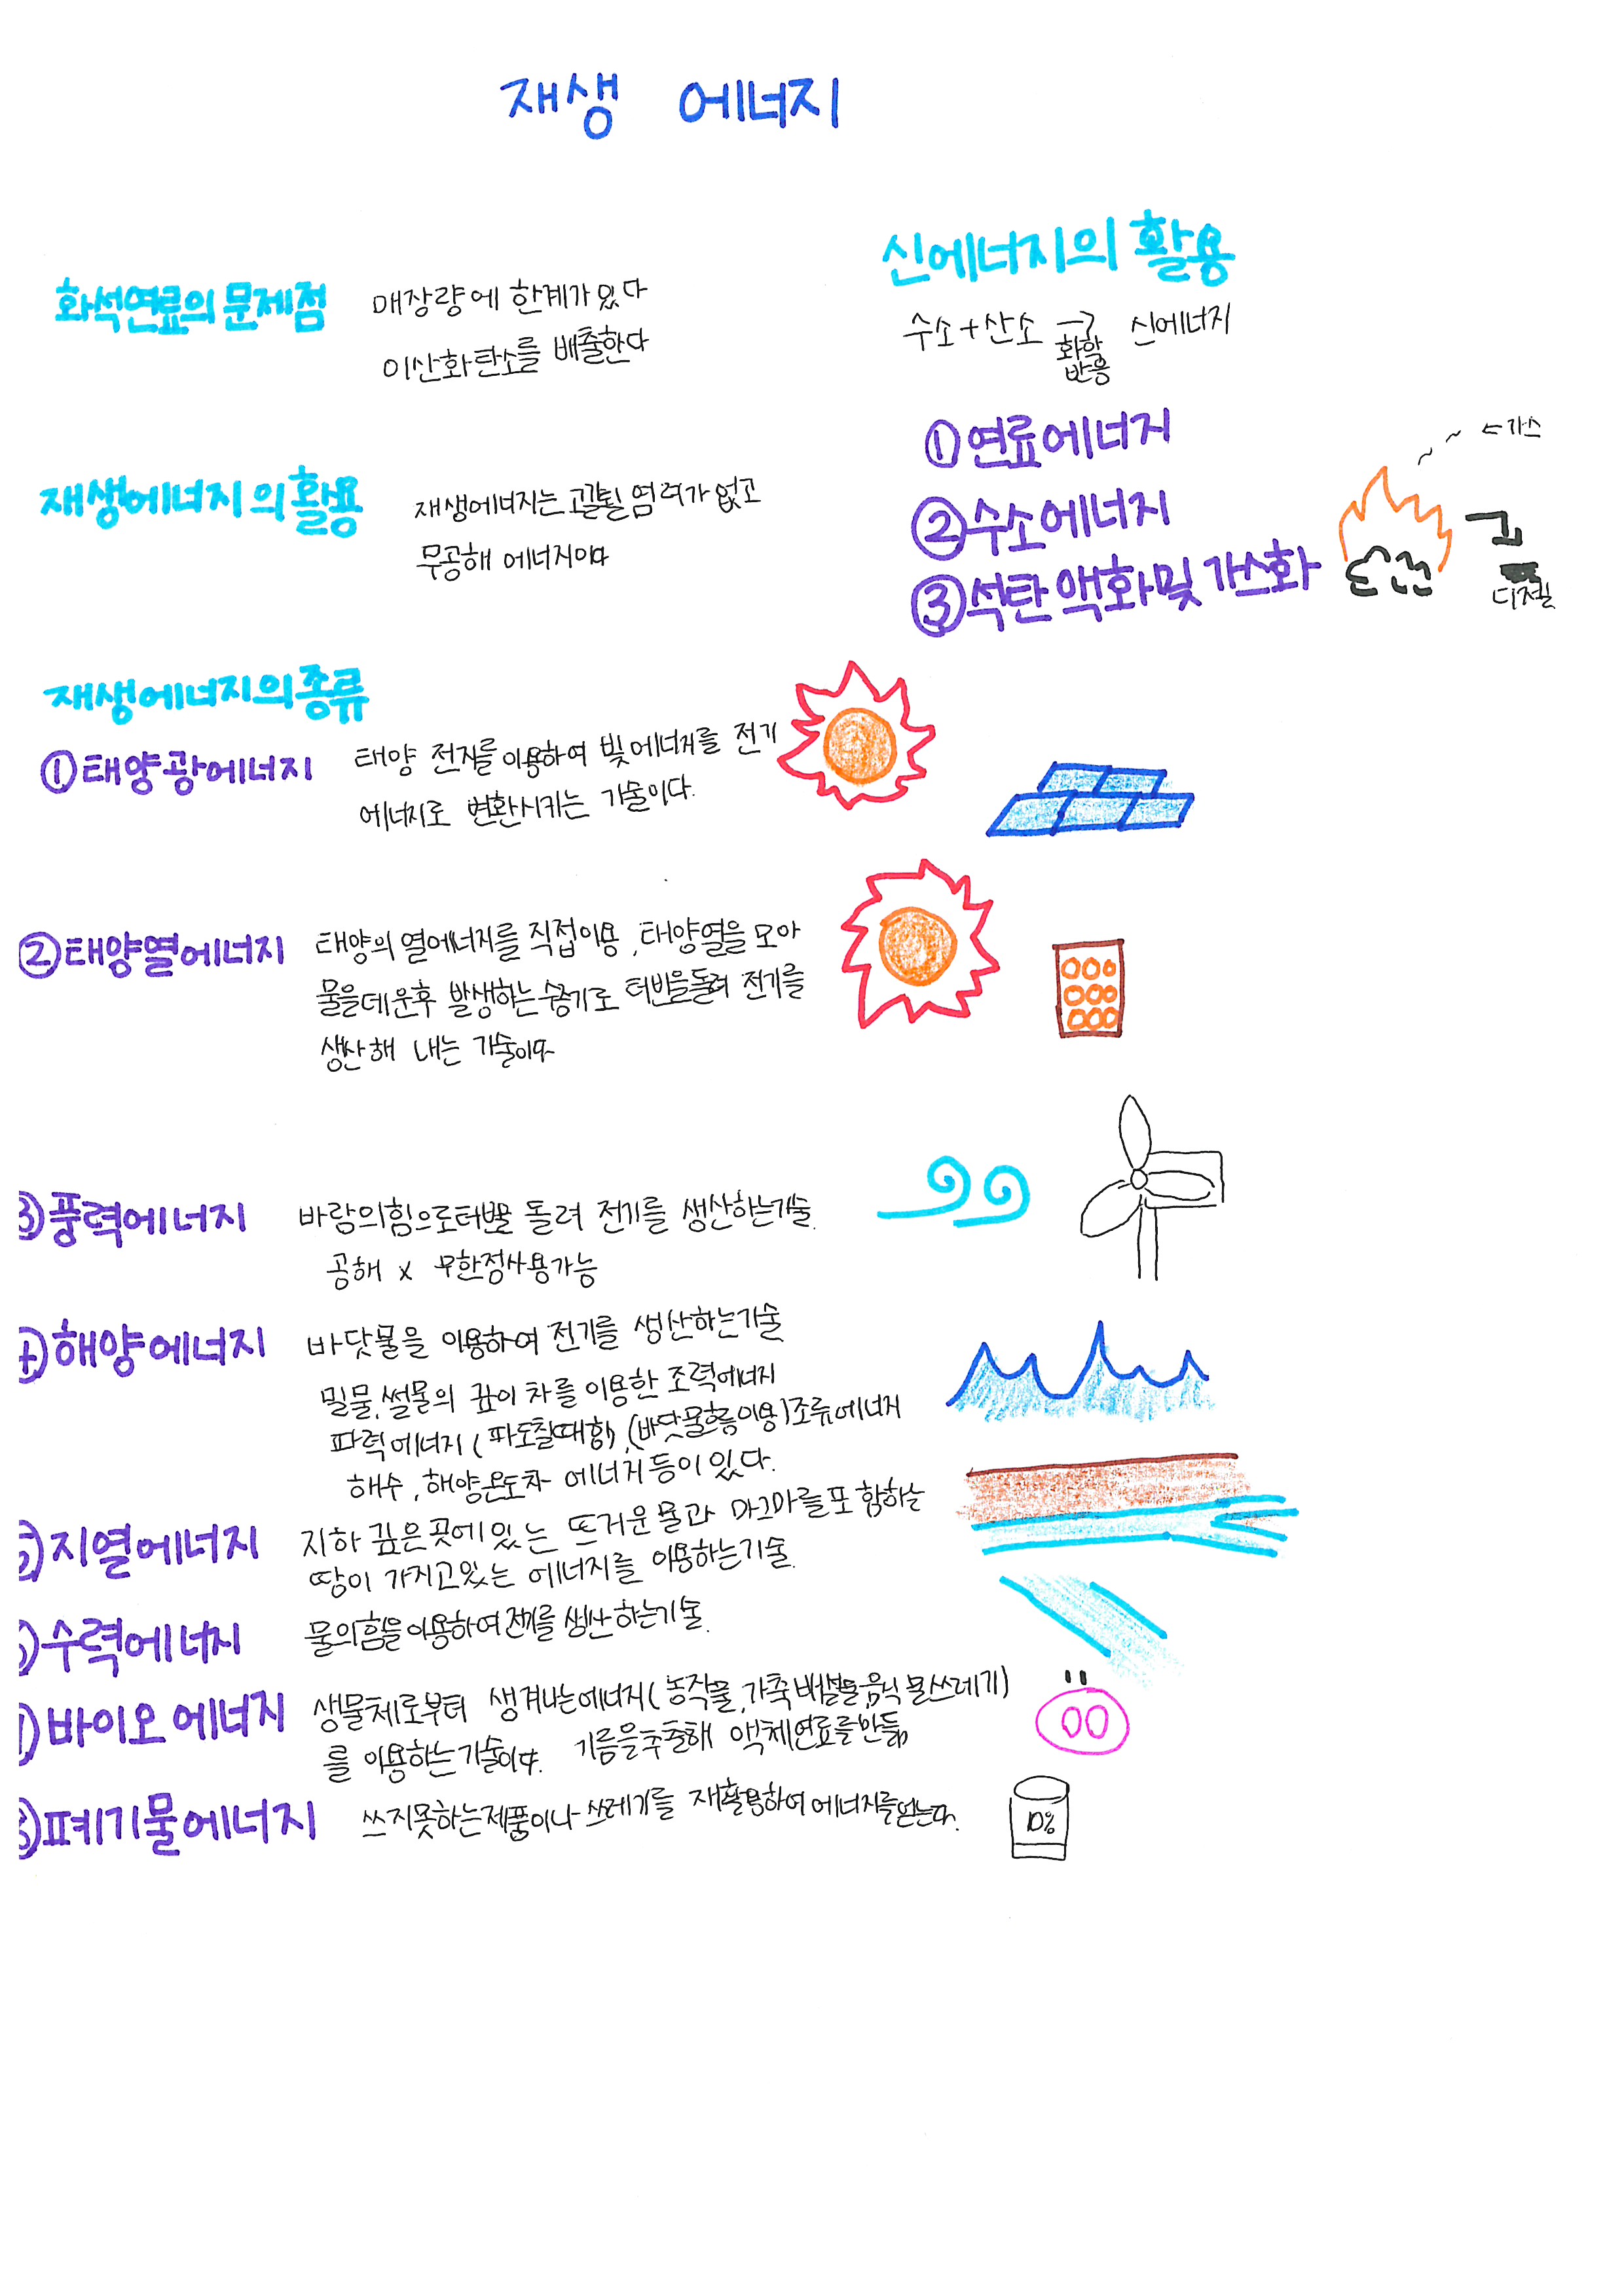 재생 에너지
화석연료의 문제점
매장량에 한계가 있다
이산화탄소를 배출한다
신에너지의 활용
수소+산소 → 신에너지
화학
반응
① 연료에너지
② 수소에너지
③ 석탄 액화 및 가스화
←가스
디젤
재생에너지의 활용
재생에너지는 고갈될 염려가 없고
무공해 에너지이다
재생에너지의 종류
① 태양광에너지
태양 전지를 이용하여 빛에너지를 전기
에너지로 변환시키는 기술이다.
② 태양열에너지
태양의 열에너지를 직접이용, 태양열을 모아
물을데운후 발생하는 증기로 터빈을돌려 전기를
생산해 내는 기술이다
③ 풍력에너지
바람의힘으로터빈을 돌려 전기를 생산하는기술.
공해 x 무한정사용가능
④ 해양에너지
바닷물을 이용하여 전기를 생산하는기술
밀물, 썰물의 깊이 차를 이용한 조력에너지
파력에너지 (파도칠때힘), (바닷물흐름이용)조류에너지
해수, 해양온도차 에너지등이 있다.
지열에너지
지하 깊은곳에 있는 뜨거운 물과 마그마를포함하는
땅이 가지고있는 에너지를 이용하는기술.
수력에너지
물의힘을이용하여전기를 생산하는기술.
바이오 에너지
생물체로부터 생겨나는에너지(농작물,가축배설물,음식물쓰레기)
를 이용하는기술이다. 기름을추출해 액체연료를만듦
폐기물에너지
쓰지못하는제품이나 쓰레기를 재활용하여에너지를얻는다.
10%